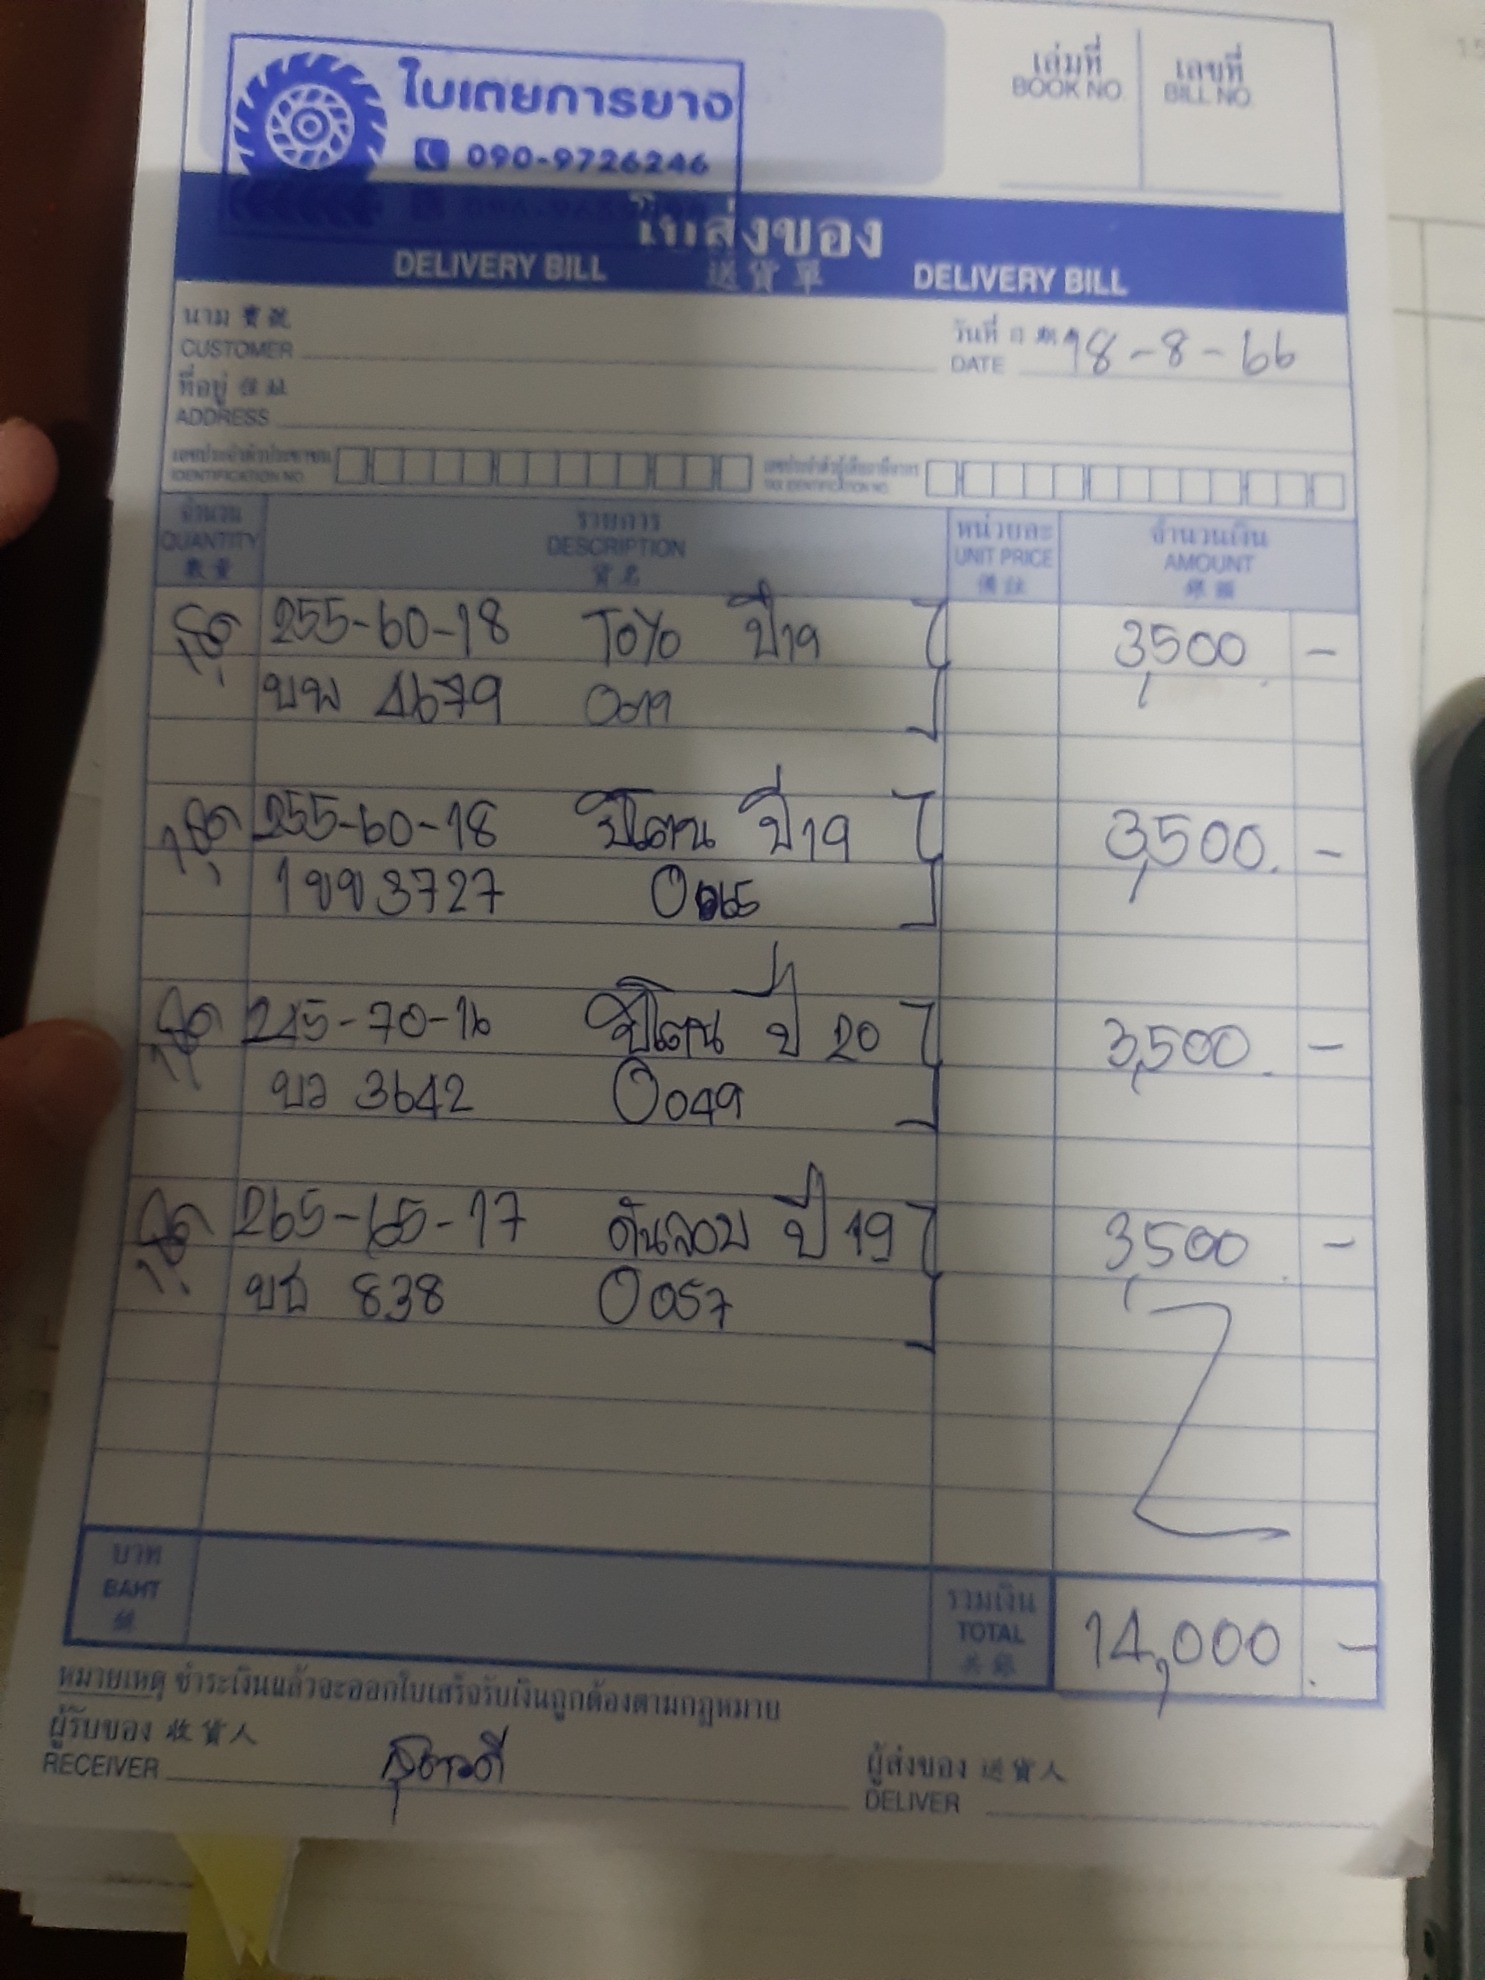 ใบเตยการยาง
090-9726246
เล่มที่
BOOK NO.
เลขที่
BILL NO.
ใบส่งของ
DELIVERY BILL 送貨單 DELIVERY BILL
นาม 寶號
CUSTOMER
วันที่ 日期
DATE 18-8-66
ที่อยู่ 住址
ADDRESS
เลขประจำตัวประชาชน
IDENTIFICATION NO.
เลขประจำตัวผู้เสียภาษีอากร
TAX IDENTIFICATION NO.
จำนวน รายการ หน่วยละ จำนวนเงิน
QUANTITY DESCRIPTION UNIT PRICE AMOUNT
數量 貨名 備註 銀碼
1ชุด 255-60-18 TOYO ปี19 3,500 -
บพ 4679 0019
1ชุด 255-60-18 ปี19 3,500. -
1ขข3727 0065
1ชุด 245-70-16 ปี 20 3,500. -
บว 3642 0049
1ชุด 265-65-17 ดันลอบ ปี 19 3,500 -
บช 838 0057
บาท
BAHT
รวมเงิน
TOTAL
共銀
14,000.-
หมายเหตุ ชำระเงินแล้วจะออกใบเสร็จรับเงินถูกต้องตามกฎหมาย
ผู้รับของ 收貨人
RECEIVER
ผู้ส่งของ 送貨人
DELIVER